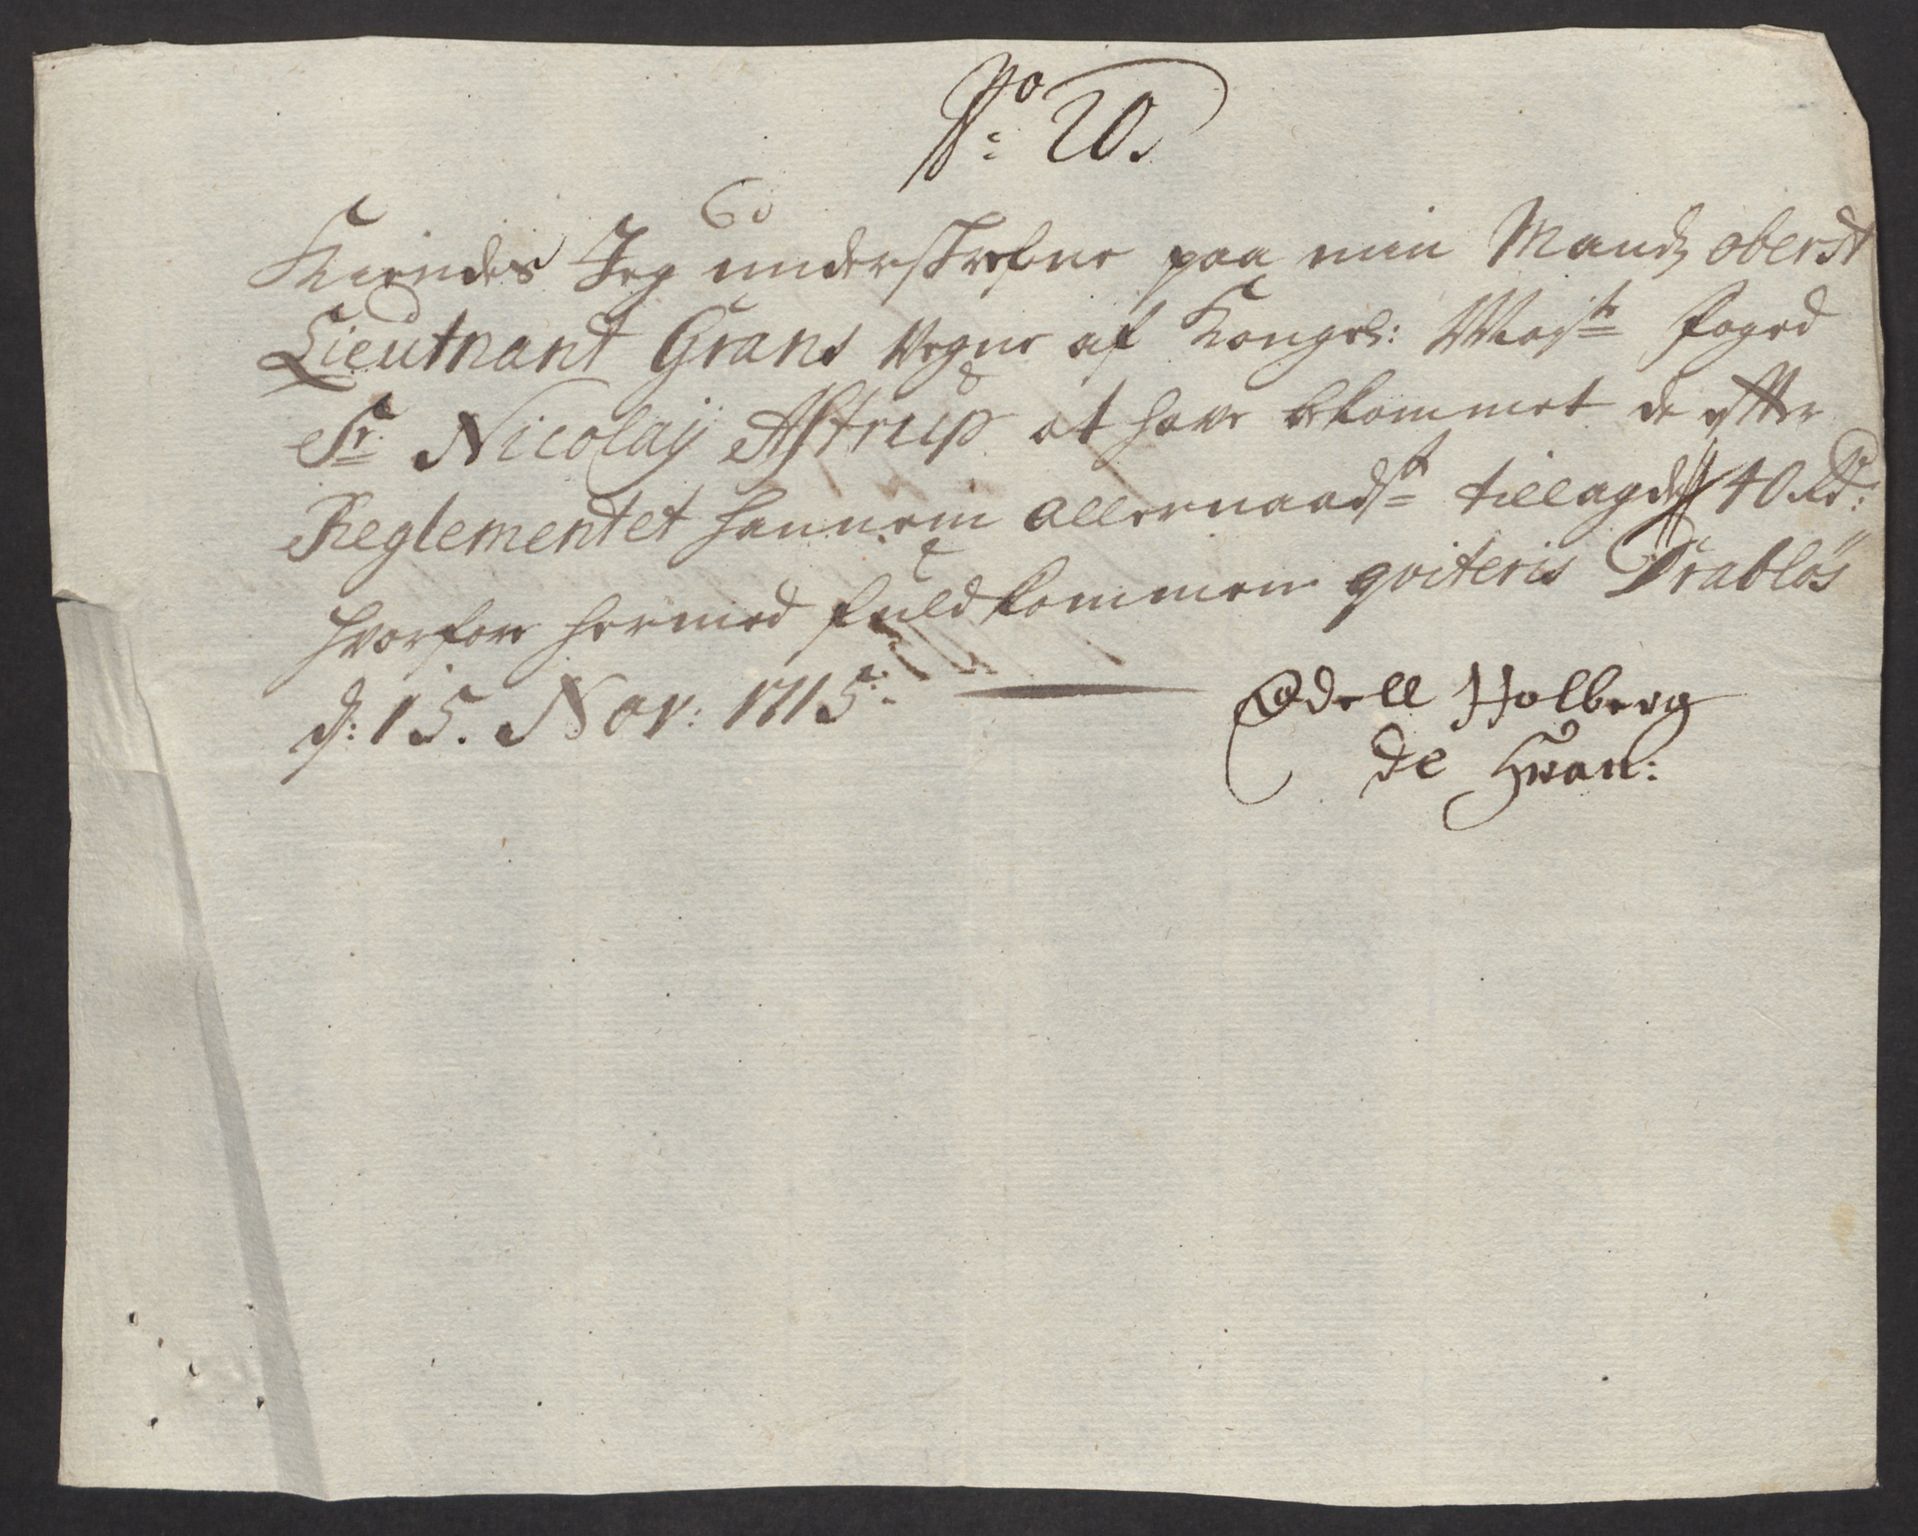 No: 20.
Kiendes Jeg underskrefne paa min Mands oberst
Lieutnant Grans vegne af Kongel: May:ts foged
Sr. Nicolay Astrup at have bekommet de efter
Reglementet hannem allernaadst tillagde 40 Rd:
hvorfore hermed fuldkommen qviteris Drabløs
d: 15. Nov: 1715.
Edell Holberg
de Gran: